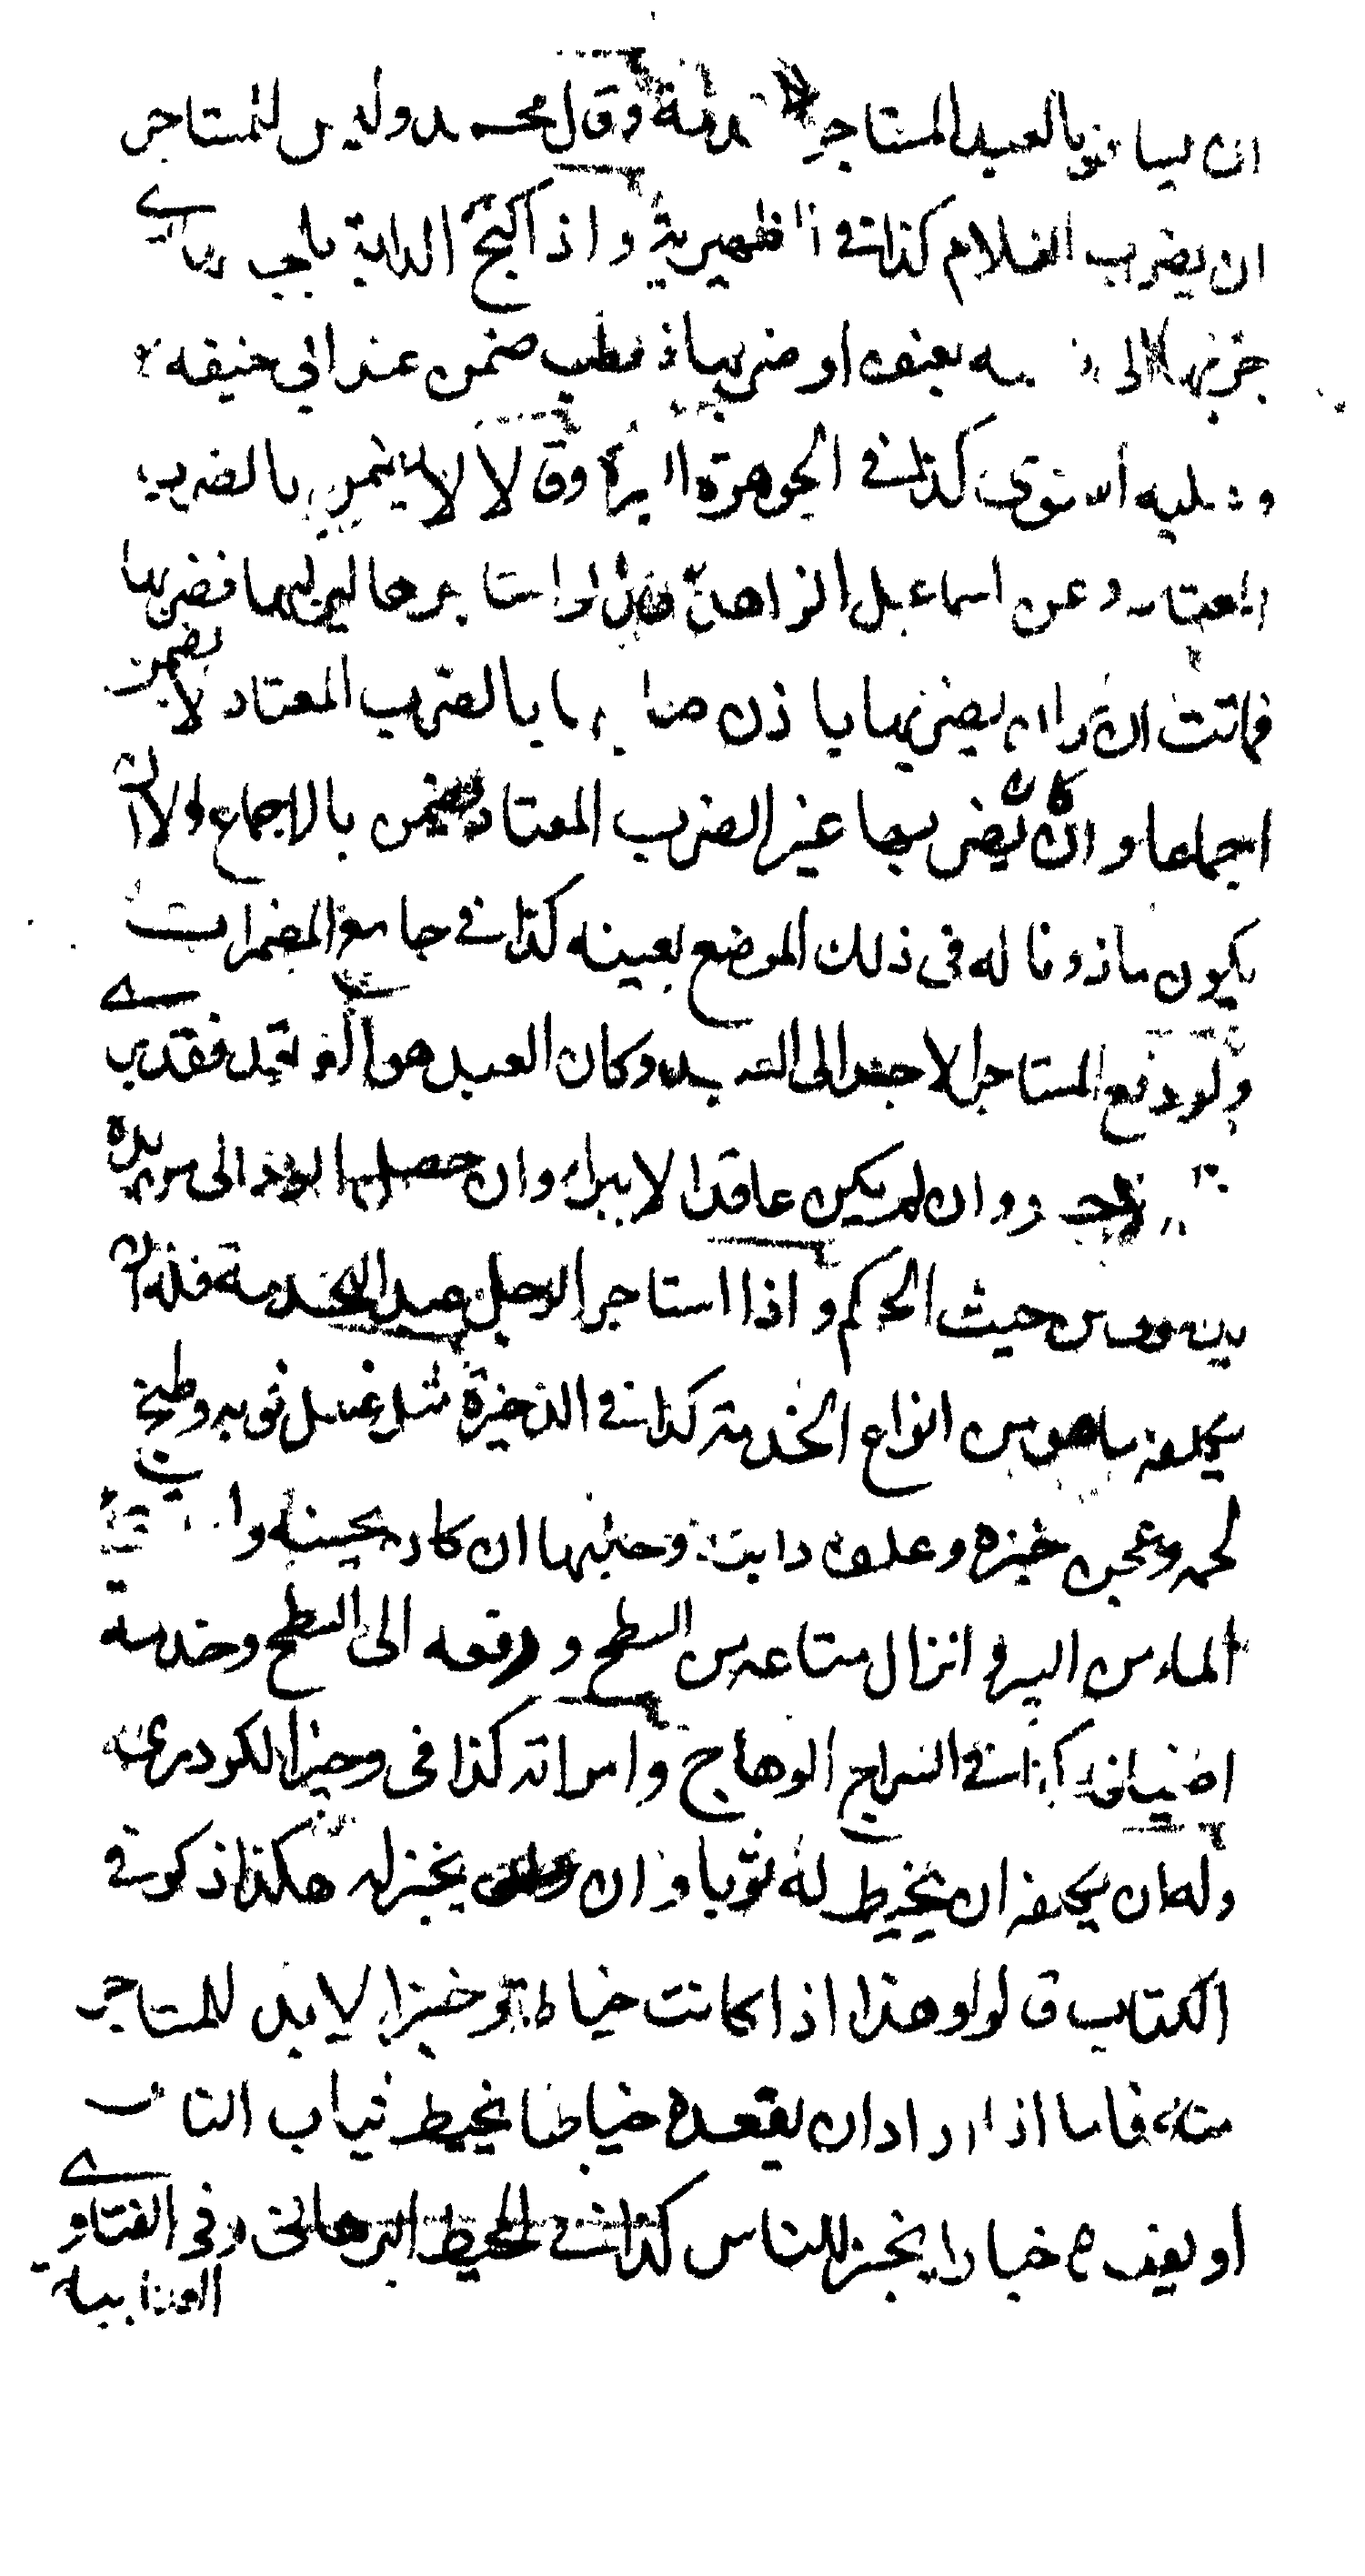 ان يسافر بالعبد المستاجر للخدمة وقال محمد وليس للمستاجر
ان يضرب الغلام كذا في الظهيرية واذا كبح الدابة بلجامها اي
جذبها الى نفسه بعنف او ضربها فعطب ضمن عند ابي حنيفه
وعليه الفتوى كذا في الجوهرة النيرة وقالا لا يضمن بالضرب
المعتاد وعن اسماعيل الزاهد قال لو استاجر حمارا فضربها
فماتت ان كان يضربها باذن صاحبها بالضرب المعتاد لا يضمن
اجماعا وان كان يضربها غير الضرب المعتاد يضمن بالاجماع الا ان
يكون ماذونا له في ذلك الموضع بعينه كذا في جامع المضمرات
ولو دفع المستاجر الاجر الى العبد وكان العبد هو العاقد فقد بري
من الاجر وان لم يكن عاقدا لا يبرا وان حصل الرد الى من يده
يد من حيث الحكم واذا استاجر الرجل عبدا للخدمة فله ان
يكلفه ما هو من انواع الخدمة كذا في الذخيرة مثل غسل ثوبه وطبخ
لحمه وعجن خبزه وعلف دابته وحلبها ان كان يحسنه و
الماء من البير وانزال متاعه من السطح ورفعه الى السطح وخدمة
اضيافه كذا في السراج الوهاج وامراته كذا في وجيز الكردري
وله ان يكلفه ان يخيط له ثوبا وان يخبز له هكذا ذكر في
الكتاب قالوا وهذا اذا كانت خياطة وخبزا لا بد للمستاجر
منه فاما اذا اراد ان يقعده خياطا يخيط ثياب الناس
او يقعده خبازا يخبز للناس كذا في المحيط البرهاني وفي الفتاوي
العتابية